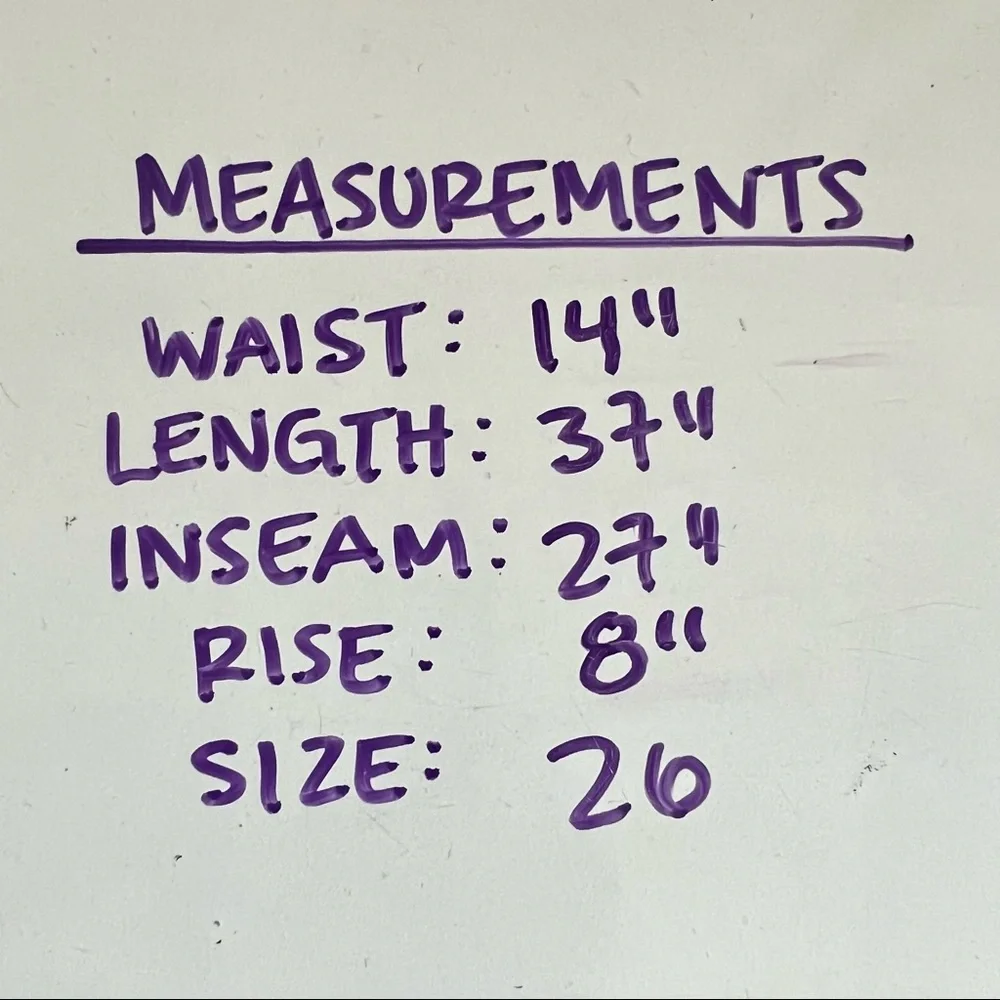 MEASUREMENTS
WAIST: 14"
LENGTH: 37"
INSEAM: 27"
RISE: 8"
SIZE: 26